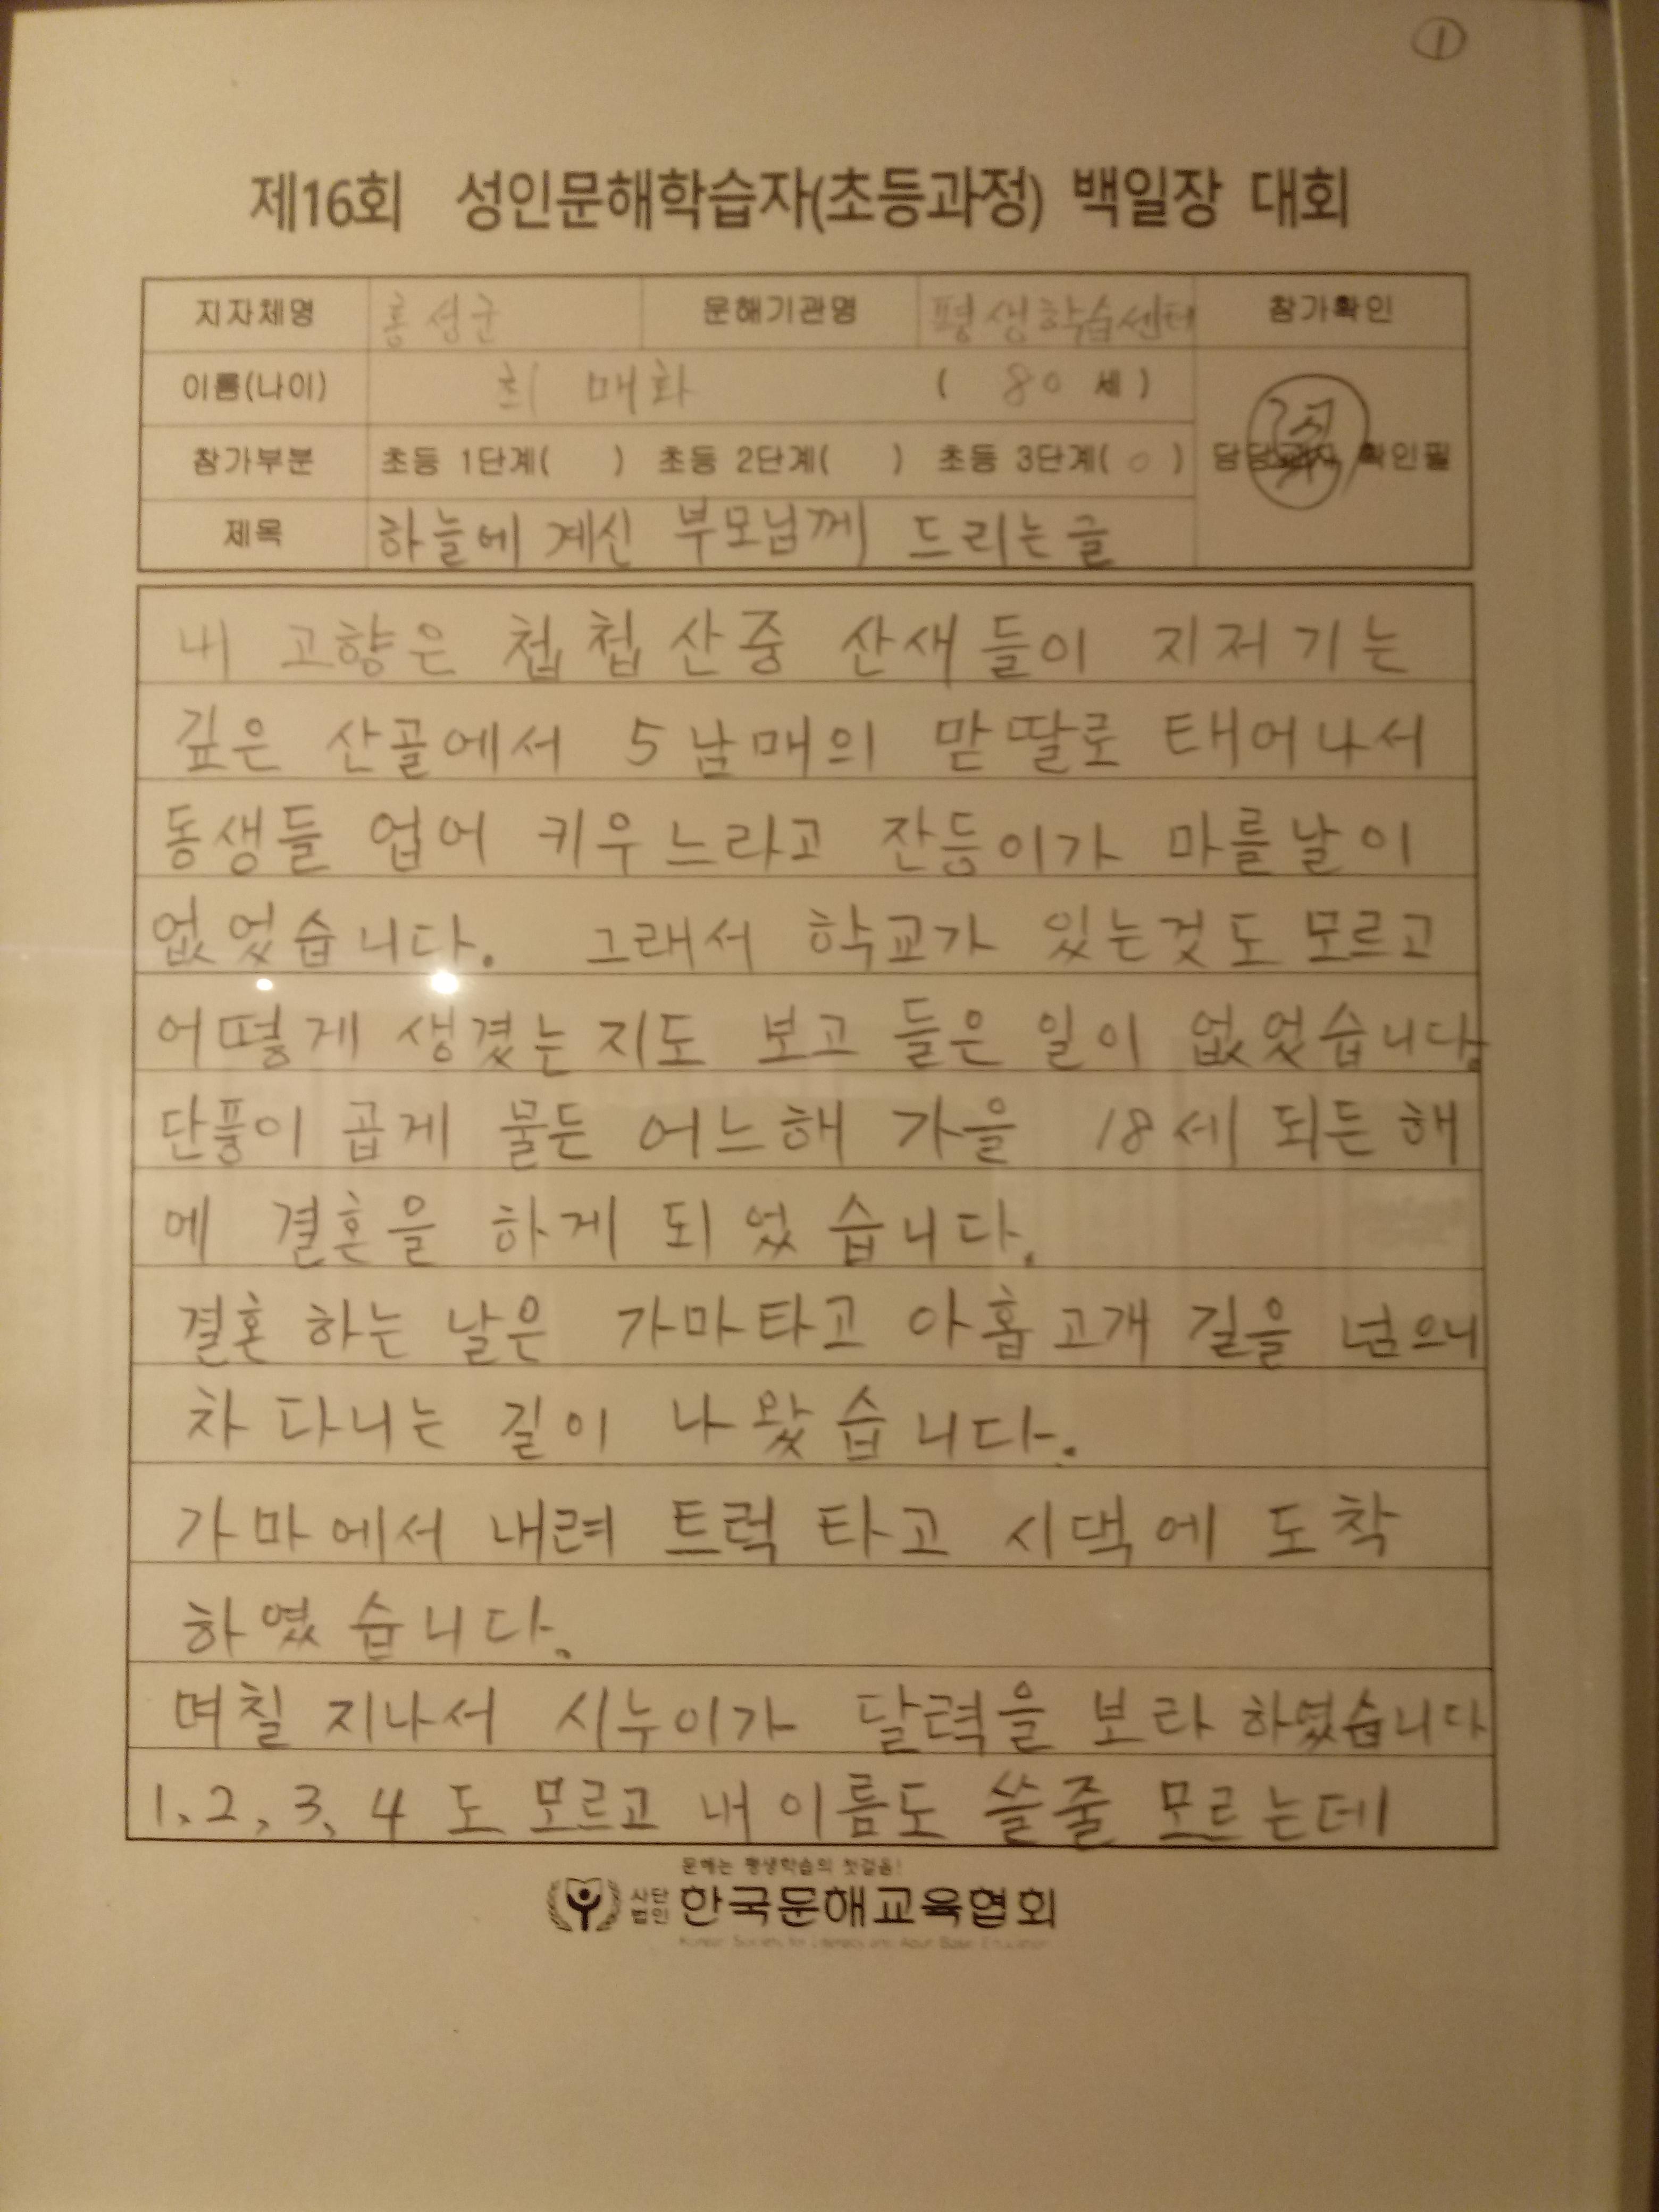 ①
제16회 성인문해학습자(초등과정) 백일장 대회
지자체명 홍성군 문해기관명 평생학습센터 참가확인
이름(나이) 최 매화 ( 80 세 )
참가부분 초등 1단계( ) 초등 2단계( ) 초등 3단계( ○ ) 담당 확인필
제목 하늘에 계신 부모님께 드리는 글
내 고향은 첩첩 산중 산새들이 지저기는
깊은 산골에서 5남매의 맏딸로 태어나서
동생들 업어 키우느라고 잔등이가 마를날이
없었습니다. 그래서 학교가 있는것도 모르고
어떻게 생겼는지도 보고 들은 일이 없었습니다.
단풍이 곱게 물든 어느해 가을 18세 되든 해
에 결혼을 하게 되었습니다.
결혼 하는 날은 가마타고 아홉고개 길을 넘으니
차 다니는 길이 나왔습니다.
가마에서 내려 트럭 타고 시댁에 도착
하였습니다.
며칠 지나서 시누이가 달력을 보라 하였습니다
1, 2, 3, 4 도 모르고 내 이름도 쓸줄 모르는데
문해는 평생학습의 첫걸음!
사단법인 한국문해교육협회